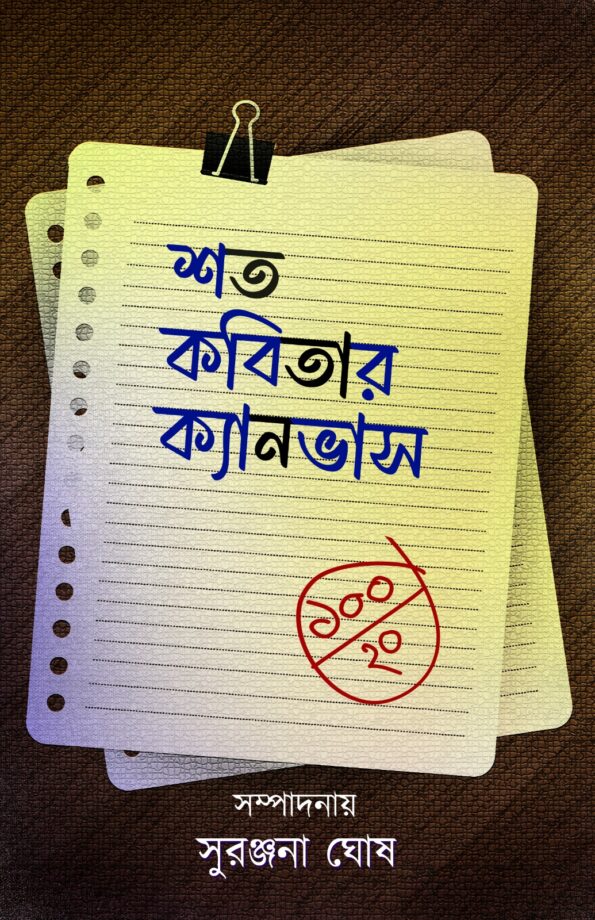 শত
কবিতার
ক্যানভাস
১০০
২০
সম্পাদনায়
সুরঞ্জনা ঘোষ